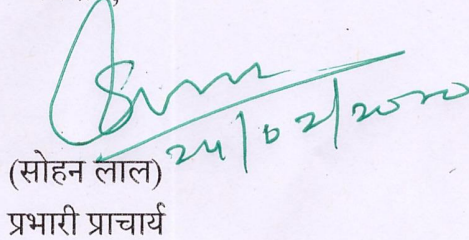 24/02/2020
(सोहन लाल)
प्रभारी प्राचार्य